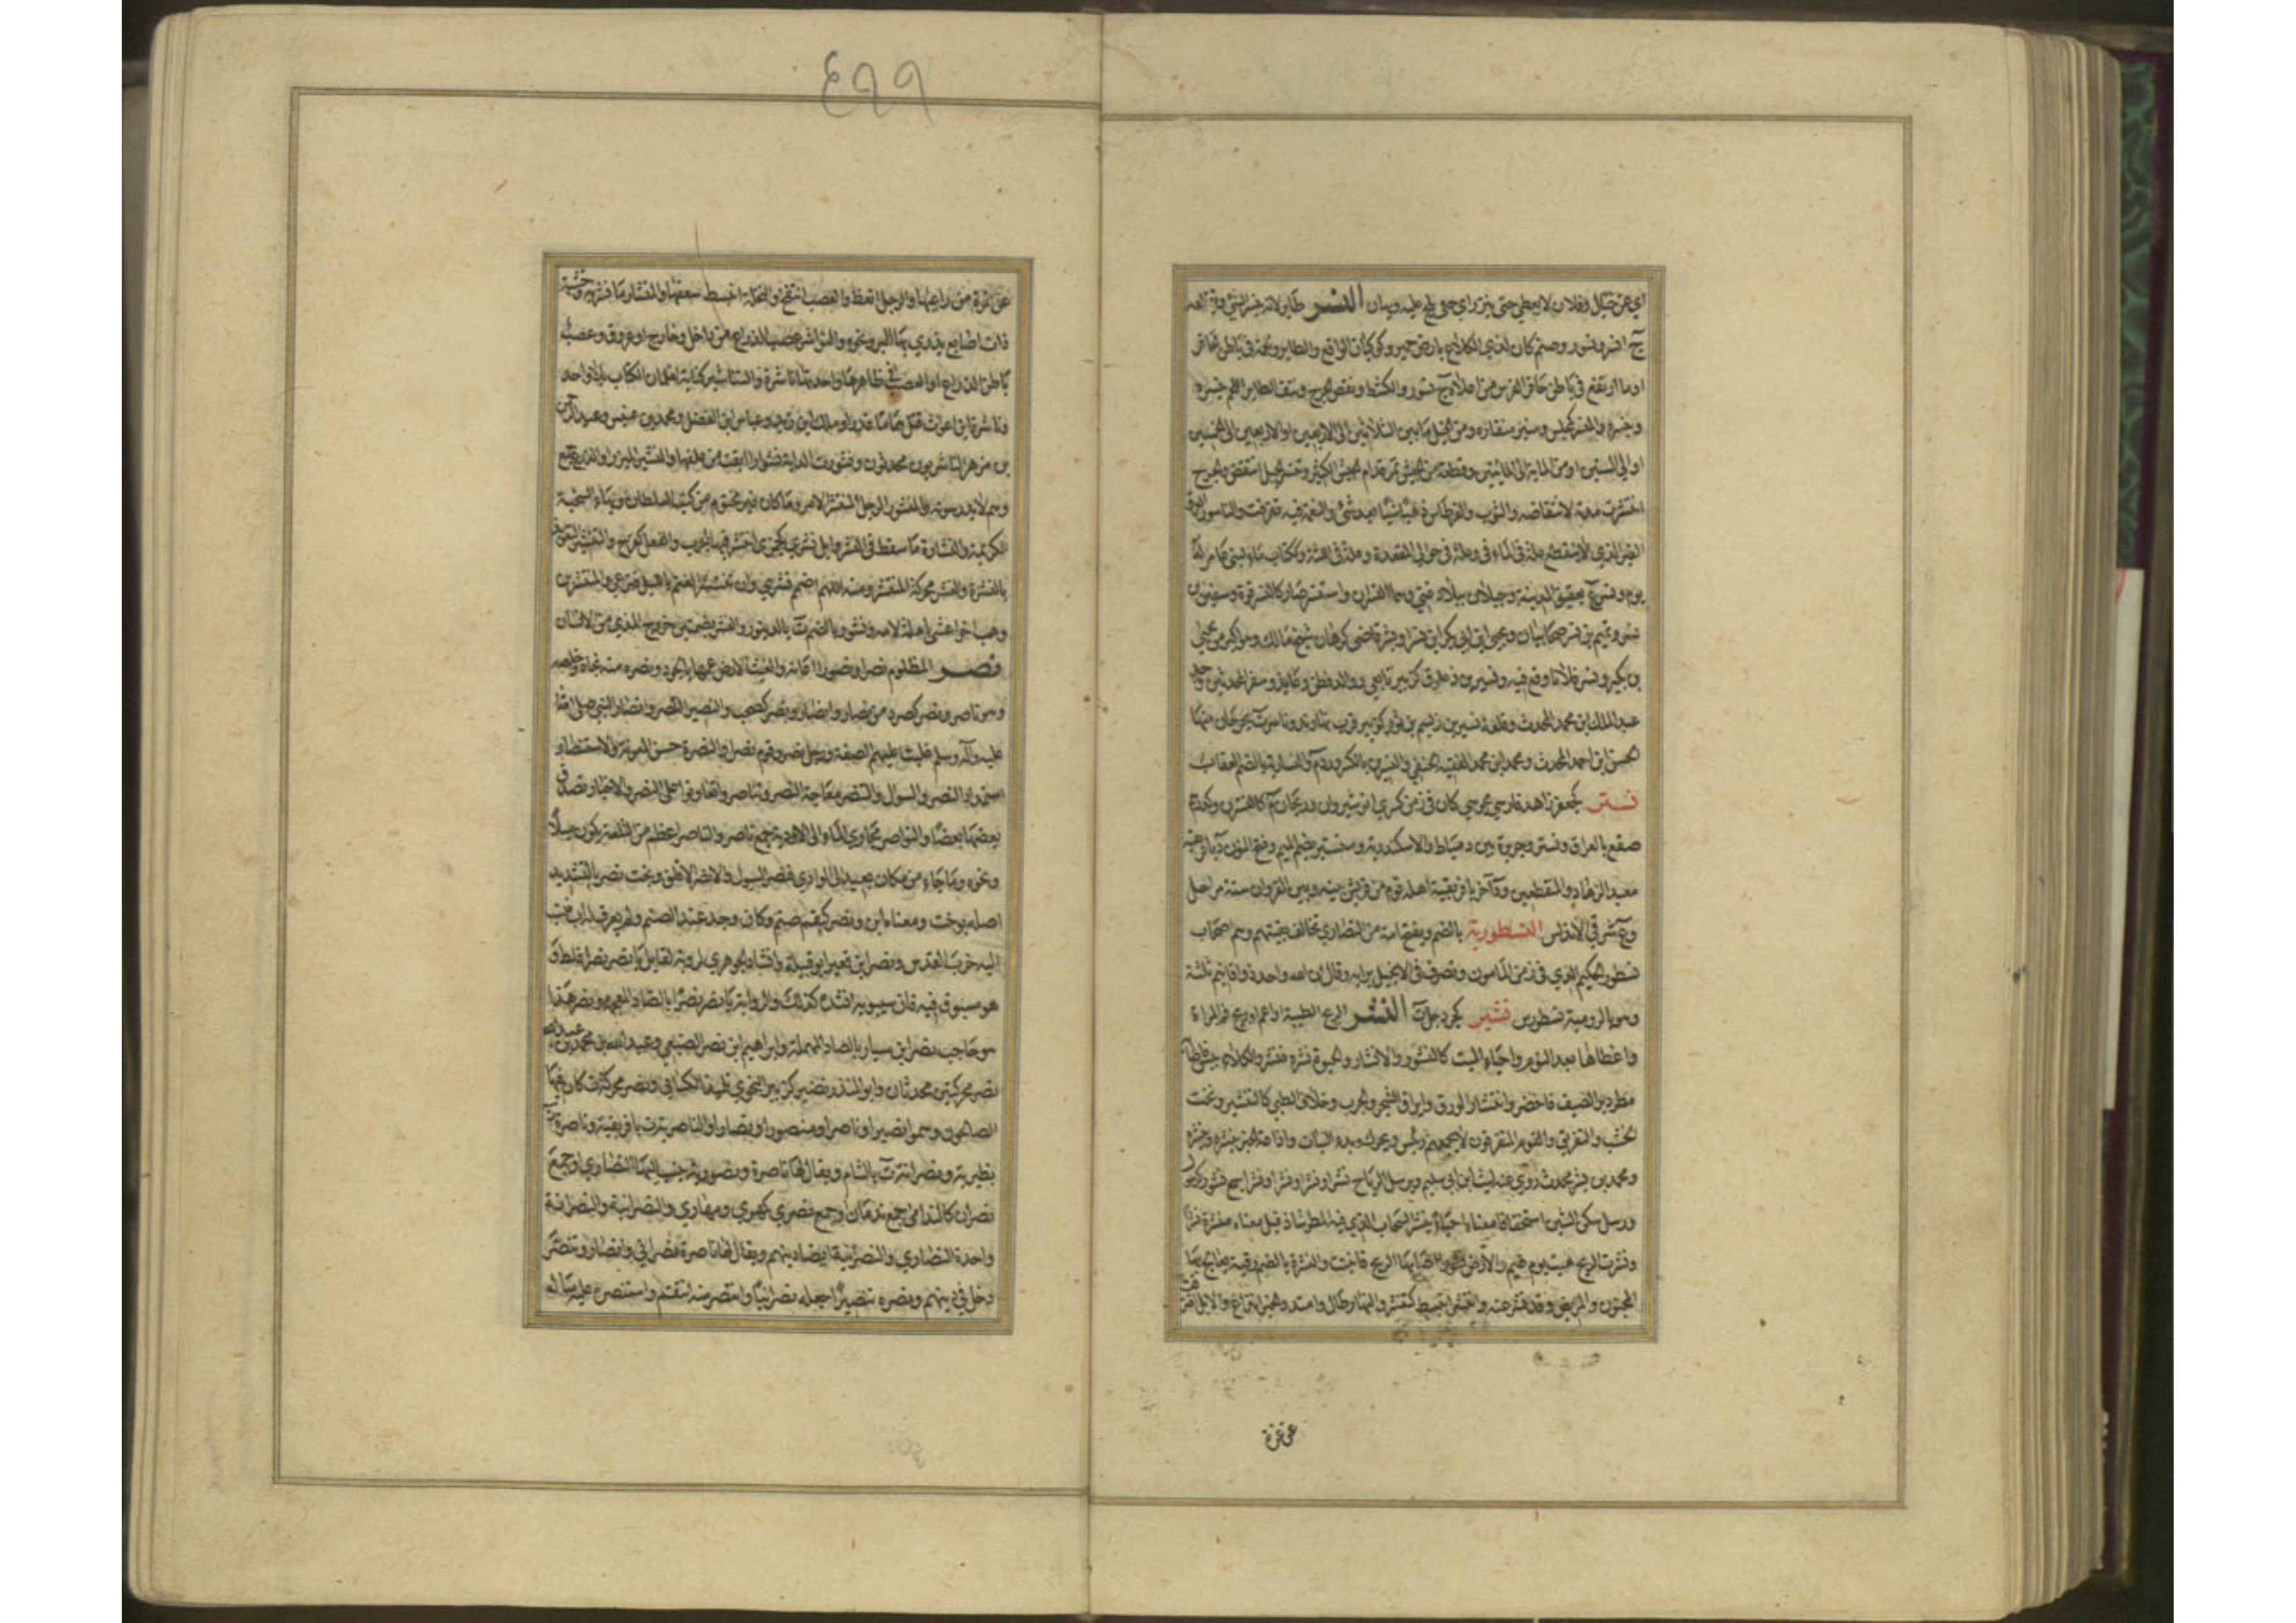 اي عن خيل وفلان لا يعطي حتى ينزر اي حتى يلح عليه ويهان النسر طاير لانه ينسر الشيء ويقتلعه
ج انسر ونسور وصنم كان لذي الكلاع بارض حمير وكوكبان الواقع والطاير ولحمة في باطن الحافر
او ما ارتفع في باطن حافر الفرس من اعلاه ج نسور والكشط ونقض الجرح ونتف الطاير اللحم ينسره
وينسره والمنسر كمجلس ومنبر منقاره ومن الخيل ما بين الثلاثين الى الاربعين او الاربعين الى الخمسين
او الى الستين او من الماية الى المايتين وقطعة من الجيش تمر قدام الجيش الكثير وتنسر الحبل انتقض والجرح
انتشرت مدته لانتقاضه والثوب والقرطاس ذهبا شيئا بعد شئ والنعمة عنه تفرقت والناسور العرق
الغبر الذي لا ينقطع علة في المآقي وعلة في حوالي المقعدة وعلة في اللثة وككتاب ماء لبني عامر له
يوم ونسر ع بعقيق المدينة وجبلان ببلاد غني وهما النسران واستنسر صار كالنسر قوة وسفين بن
نسر وتميم بن نسر صحابيان ويحيى ابن ابي بكر ابن نسر او بشر قاضي كرمان شيخ مالك وهو اكبر من يحيى
بن بكير ونسر فلانا وقع فيه ونسير بن ذعلوق كزبير تابعي ووالد قطن وعايذ وسفر المحدثين وجد
عبد الملك ابن محمد المحدث وقلعة نسير بن ديسم بن ثور كزبير قرب نهاوند وناسر ة بجرجان منها
الحسن ابن احمد المحدث ومحمد ابن محمد الفقيه الحنفي والنسرين بالكسر ورد م والنسارية بالضم العقاب
نستر كجعفر زاهد فارسي مجوسي كان في زمن كسرى انوشيروان وريحان م كالنسرين وكورة
صقع بالعراق ونسترو جزيرة بين دمياط والاسكندرية ومنستير بضم الميم وفتح النون د بافريقية
معبد الزهاد والمنقطعين و د آخر بافريقية اهله قوم من قريش بينه وبين القيروان ستة مراحل
وع شرقي الاندلس النسطورية بالضم ويفتح امة من النصارى تخالف بقيتهم وهم اصحاب
نسطور الحكيم الذي في زمن المامون وتصرف في الانجيل برايه وقال ان الله واحد ذو اقانيم ثلثة
وهو بالرومية نسطورس نشتبر كجردحل ة النشر الريح الطيبة او اعم او ريح فم المراة
واعطافها بعد النوم واحياء الميت كالنشور والانشار والحيوة نشره فنشر والكلاء يبس فاصابه
مطر دبر الصيف فاخضر وانتشار الورق وايراق الشجر والجرب وخلاف الطي كالتنشير ونحت
الخشب والتفريق والقوم المتفرقون لا يجمعهم رئيس ويحرك وبدء النبات واذاعة الخبر ينشره وينشره
ومحمد بن نشر محدث روى عنه ليث ابن ابي سليم ويرسل الرياح نشرا ونشرا ونشرا ونشرا جمع نشور كرسول
ورسل سكن الشين استخفافا معناه احياء ينشر السحاب الذي فيه المطر شاذ قيل معناه منشرة نشرا
ونشرت الريح هبت يوم غيم والارض نشورا اصابها الربيع فانبتت والنشرة بالضم رقية يعالج بها
المجنون والمريض وقد نشر عنه وانتشر انبسط كتنشر والنهار طال وامتد والخبر انذاع والابل افترقت
عن غرة
٤٩٩
عن غرة من راعيها والرجل انعظ والعصب انتفخ والنخلة انبسط سعفها والمنشار ما نشر به وخشبة
ذات اصابع يذرى بها البر ونحوه والنواشر عصب الذراع من داخل وخارج او عروق وعصب
باطن الذراع او العصب في ظاهرها واحدتها ناشرة والتناشير كتابة لغلمان الكتاب بلا واحد
وناشرة ابن اغواث قتل هماما غدرا ومالك ابن زيد وعباس ابن الفضل ومحمد بن عنبس وعبد الرحمن
بن مزهر الناشريون محدثون ونشورت الدابة نشوارا ابقت من علفها والنشير الميزر او الزرع جمع
وهم لا يدوسونه والمنشور الرجل المنتشر الامر وما كان غير مختوم من كتب السلطان وبهاء السخية
الكريمة والنشارة ما سقط في النشر وابل نشرى كجمزى انتشر فيها الجرب والفعل كفرح والتنشير التعويذ
بالنشرة والنشر محركة المنتشر ومنه اللهم اضمم نشري وان تنتشر الغنم بالليل فترعى والمنتشر بن
وهب اخو اعشى باهلة لامه ونشور بالضم ة بالدينور والنشر بضمتين خروج المذي من الانسان
نصر المظلوم نصرا ونصورا اعانه والغيث الارض عمها بالجود ونصره منه نجاه وخلصه
وهو ناصر ونصر كصرد من نصار وانصار ونصر كصحب والنصير الناصر وانصار النبي صلى الله
عليه وآله وسلم غلبت عليهم الصفة ورجل نصر وقوم نصر او النصرة حسن المعونة والاستنصار
استمداد النصر والسوال والتنصر معالجة النصر وتناصروا تعاونوا على النصر والاخبار صدق
بعضها بعضا والنواصر مجاري الماء الى الاودية جمع ناصر والناصر اعظم من التلعة يكون ميلا
ونحوه وما جاء من مكان بعيد الى الوادي فنصر السيول والانصر الاقلف وبخت نصر بالتشديد
اصله بوخت ومعناه ابن ونصر كبقم صنم وكان وجد عند الصنم ولم يعرف له اب فنسب
اليه خرب القدس ونصر ابن قعين ابو قبيلة وانشاد الجوهري لروبة لقايل يا نصر نصر نصرا غلط و
هو مسبوق فيه فان سيبويه انشده كذلك والرواية يا نضر نضرا بالضاد المعجمة ونضر هذا
هو حاجب نصر ابن سيار بالصاد المهملة وابراهيم ابن نصر الضبي وعبيد الله بن محمد بن عبد الله
نصر محركتين محدثان وابو المنذر نصير كزبير النحوي تلميذ الكسائي ونصرة محركة ة كان فيها
الصالحون وسموا نصيرا وناصرا ومنصورا ونصارا والناصرية ة بافريقية وناصرة ة
بطبرية ونصرانة ة بالشام ويقال لها ناصرة ونصورية ينسب اليها النصارى او جمع
نصران كالندامى جمع ندمان او جمع نصري كمهري ومهارى والنصرانية والنصرانة
واحدة النصارى والنصرانية ايضا دينهم ويقال لها ناصرة نصراني وانصار وتنصر
دخل في دينهم ونصره تنصيرا جعله نصرانيا وانتصر منه انتقم واستنصره عليه ساله